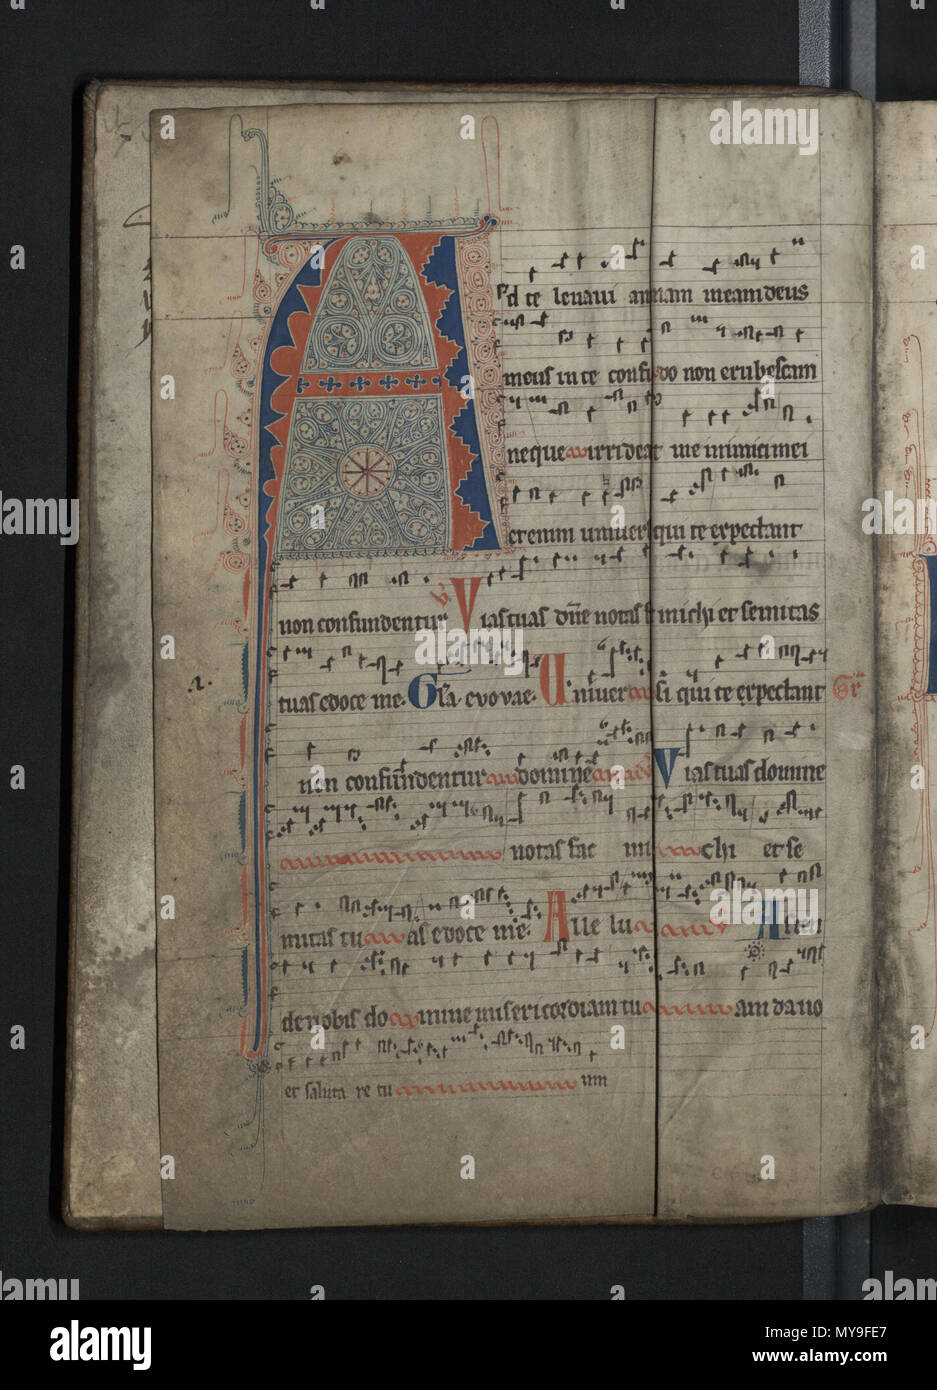 Ad te levavi animam meam deus
meus in te confido non erubescam
neque irrideant me inimici mei
etenim univer qui te expectant
non confundentur V Vias tuas dñe notas f michi et semitas
tuas edoce me. Gła. evovae. Univer si qui te expectant Gr
non confundentur domine Vias tuas domine
notas fac mi chi et se
mitas tu as edoce me. Alle lu a Osten
de nobis do mine misericordiam tu am da no
et saluta re tu um
.2.
alamy
MY9FE7
www.alamy.com